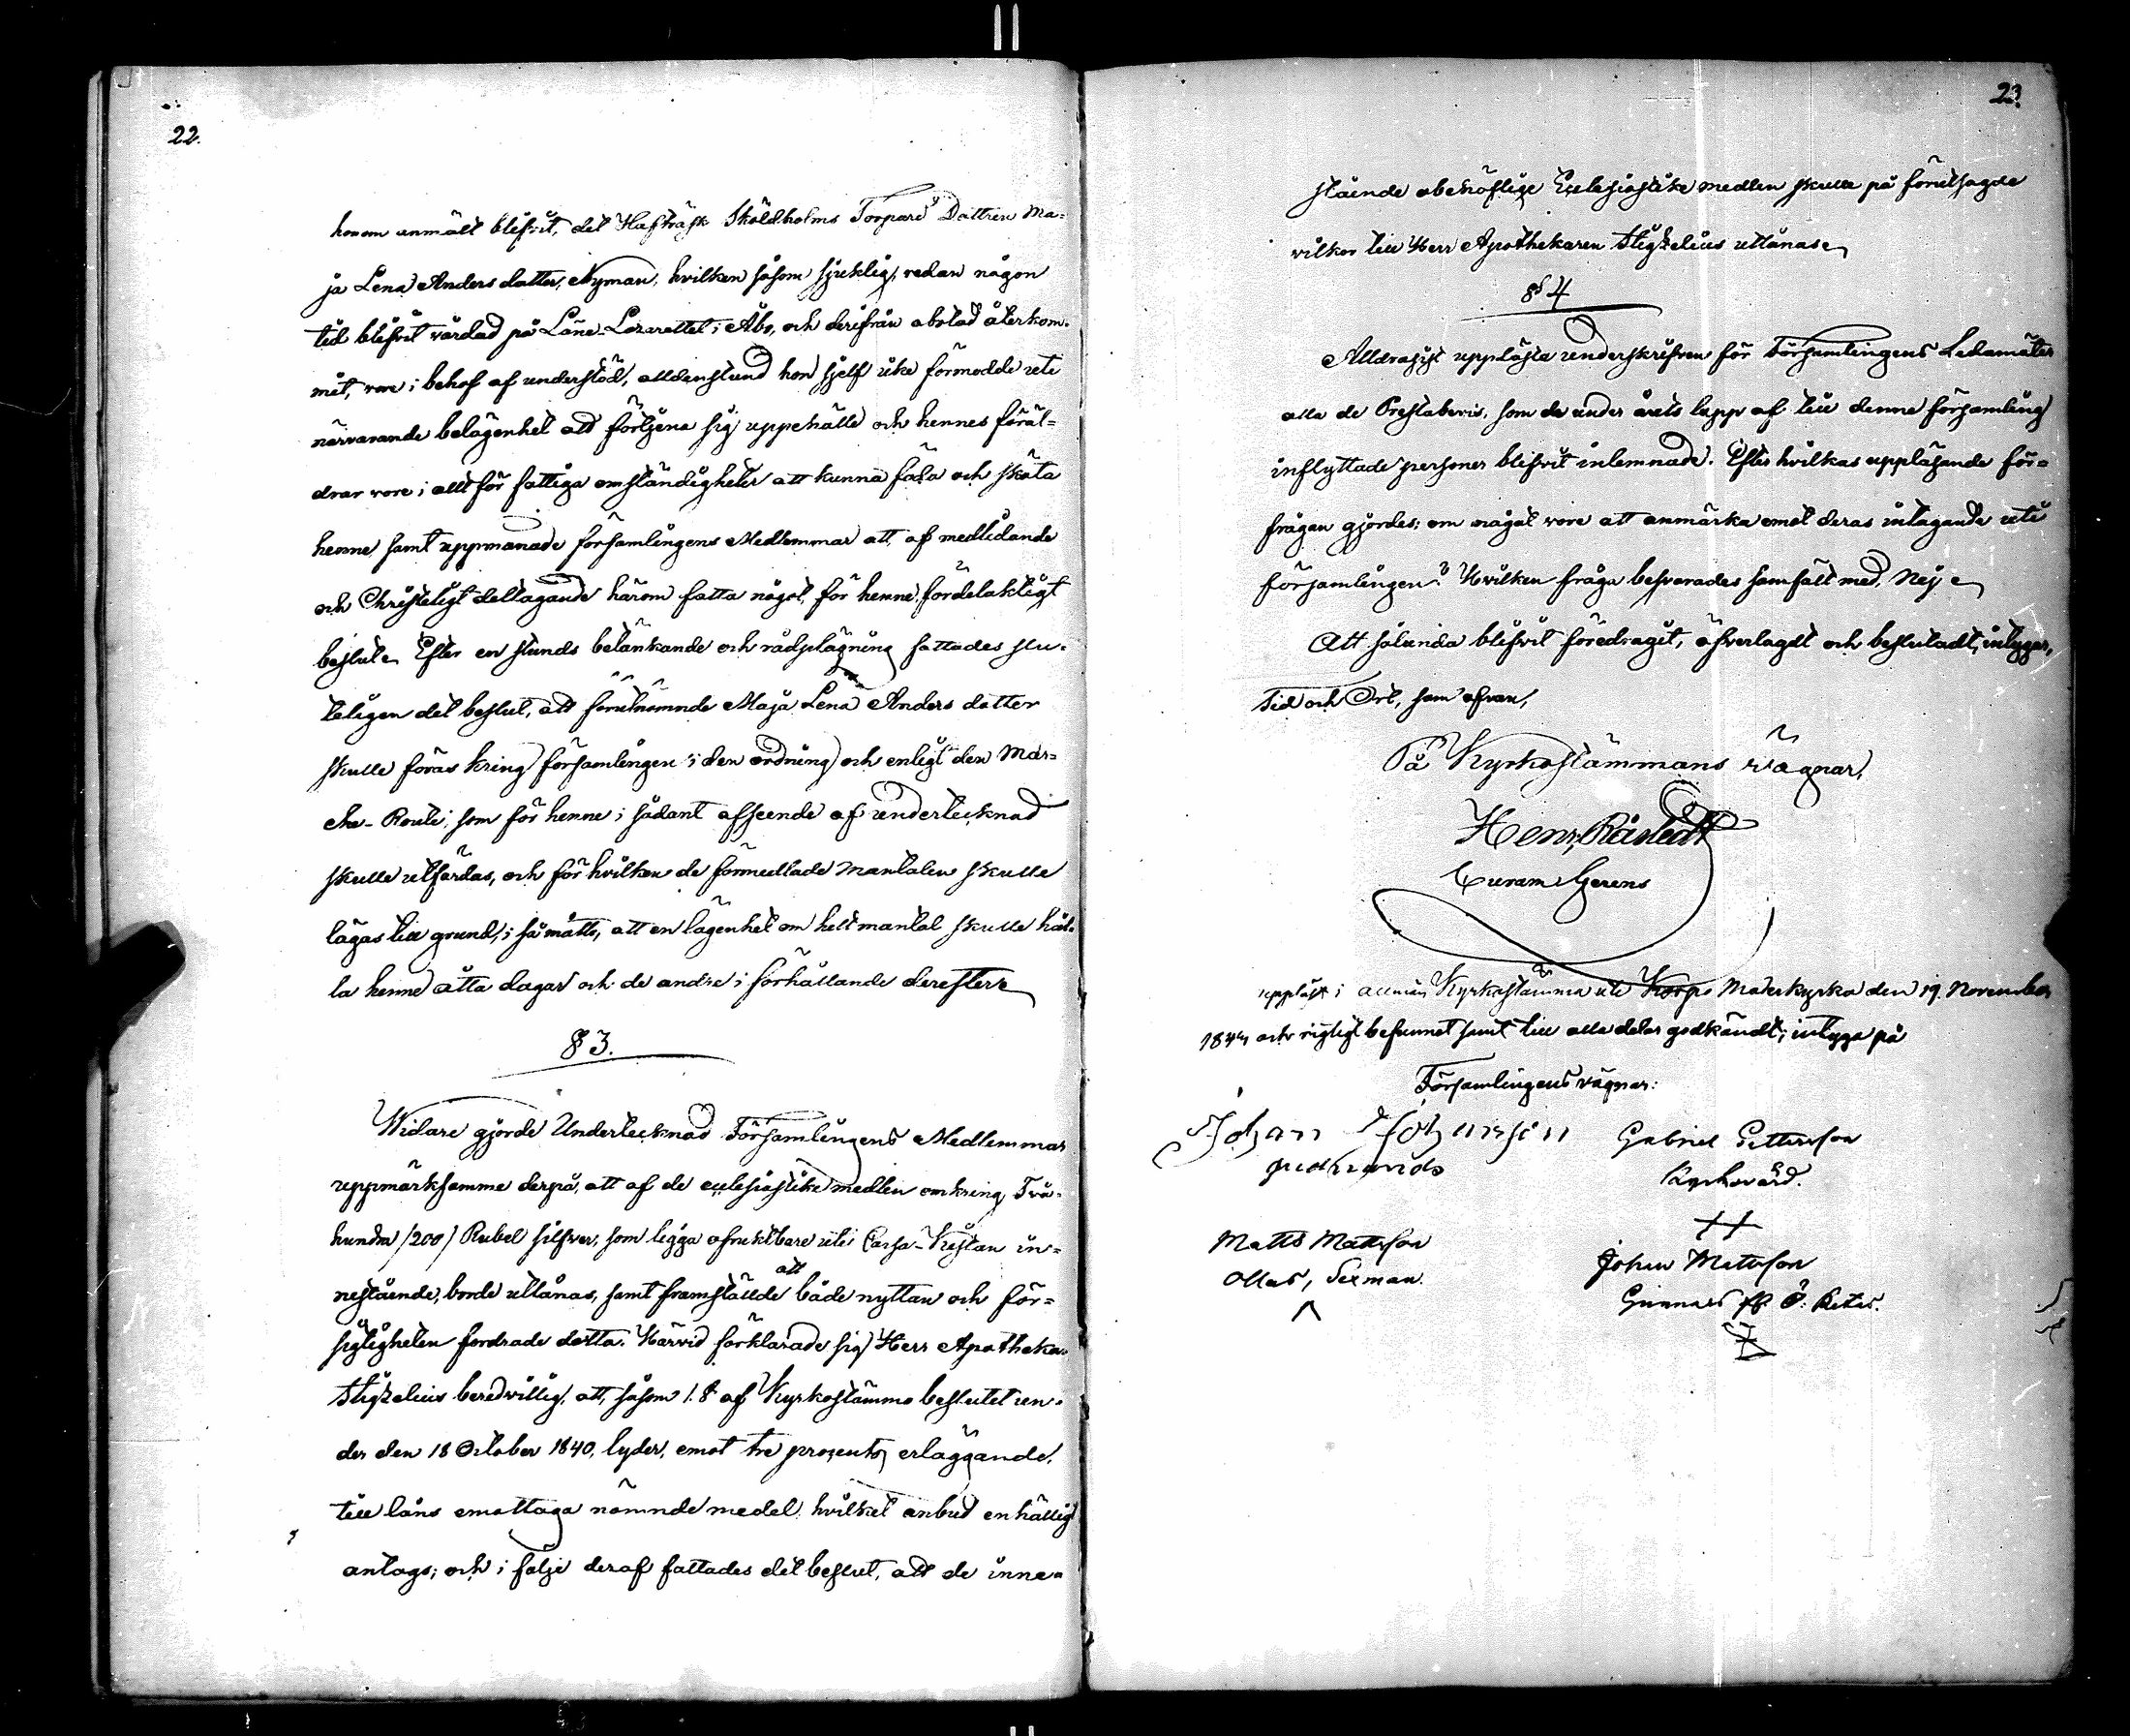 22.
honom anmält blifvit, det Hafträsk Sköldholms Torpare Dattren Ma-
ja Lena Anders datter, Nyman, hvilken såsom sjuklig, redan någon
tid blifvit vårdad på Läne-Lazarettet i Åbo, och derifrån obotad återkom-
mit, vore i behof af understöd, alldenstund hon sjelf icke förmodde uti
närvarande belägenhet att förtjena sig uppehälle och hennes föräl-
drar vore i alltför fattiga omständigheter att kunna föda och sköta
henne samt uppmanade församlingens Medlemmar att af medlidande
och Christeligt deltagande härom fatta något för henne fördelaktigt
beslut. Efter en stunds betänkande och rådplägning fattades slu-
teligen det beslut, att förutnämnde Maja Lena Anders datter
skulle föras kring församlingen i den ordning och enligt den Mar-
che-Route, som för henne i sådant afseende af undertecknad
skulle utfärdas, och för hvilken de förmedlade mantalen skulle
lägas till grund, i så måtto, att en lägenhet om helt mantal skulle hål-
la henne åtta dagar och de andre i förhållande derefter
§ 3.
Widare gjorde Undertecknad Församlingens Medlemmar
uppmärksamme derpå, att af de ecclesiastike medlen omkring Två-
hundra /200/ Rubel silfver, som ligga ofruktbare uti Cassa-Kistan in-
nestående, borde utlånas, samt framställde att både nyttan och för-
sigtigheten fordrade detta. Härvid förklarade sig Herr Apotheka-
Stigzelius beredvillig, att, såsom 1. § af Kyrkostämmo beslutet un-
der den 18 October 1840, lyder, emot tre procents erläggande,
till låns emottaga nämnde medel, hvilket anbud enhälligt
antogs; och i följe deraf fattades det beslut, att de inne-
23.
stående obehöflige Ecclesiastike medlen skulle på förutsagde
vilkor till Herr Apothekaren Stigzelius utlånas
§ 4
Alldrasist upplästa underskrifven för Församlingens Ledamöter
alla de Prestabevis, som de under årets lopp af till denna församling
inflyttade personer blifvit inlemnade. Efter hvilkas uppläsande för-
frågan gjordes: om något vore att anmärka emot deras intagande uti
församlingen? Hvilken fråga besvarades samfält med, Nej
Att sålunda blifvit föredragit, öfverlagdt och beslutadt, intygar,
Tid och Ort, som ofvan,
På Kyrkostämmans vägnar,
Henr. Råstedt
Curam Gerens
uppläst i allmän Kyrkostämma uti Korpo Moderkyrka den 19. November
184 och rigtigt befunnet samt till alla delar godkändt, intyga på
Församlingens vägnar:
Johan Johansson
Gabriel Pettersson
Kyrkovärd.
Matts Mattsson
Ollas, Sexman.
Johan Mattsson